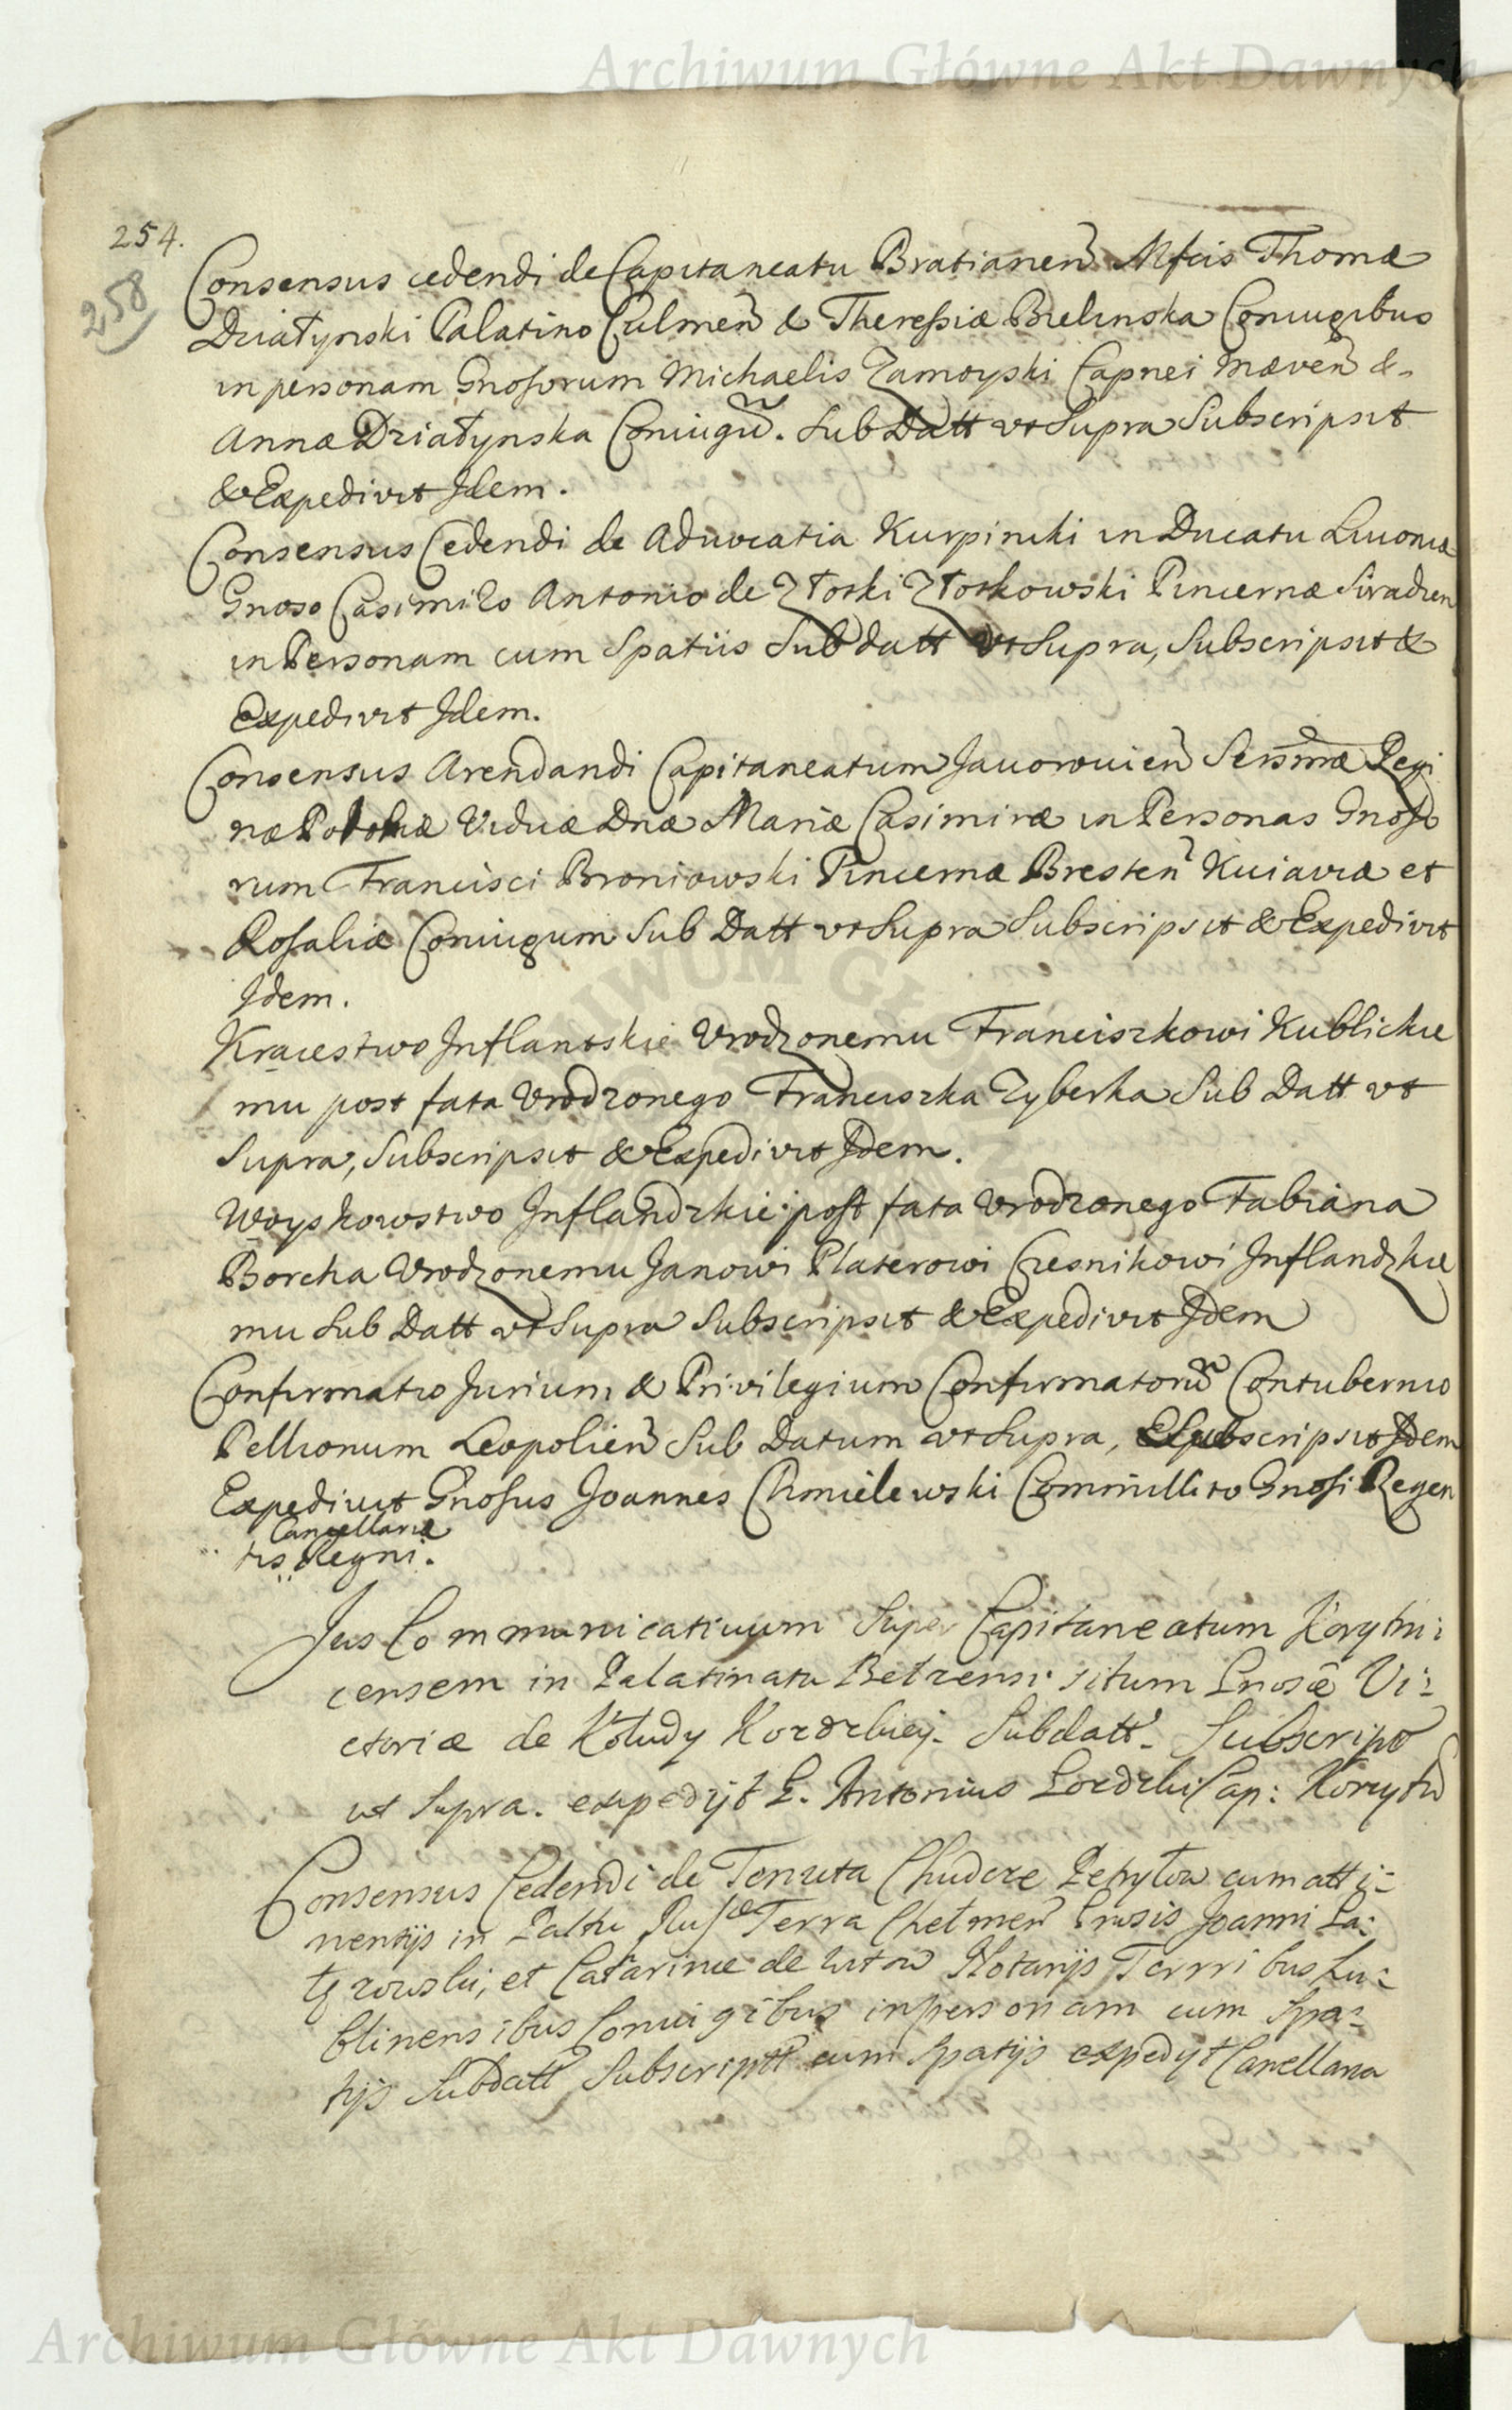 Archiwum Główne Akt Dawnych
254.
258
Consensus cedendi de Capitaneatu Bratianen Mfcis Thomæ
Dziatynski Palatino Culmen & Theressiæ Bielinska Coniugibus
in personam Gnosorum Michaelis Zamoyski Capnei Mæven &
Annæ Dziatynska Coniugu. Sub Datt vt Supra Subscripsit
& Expedivit Idem.
Consensus Cedendi de Aduocatia Kurpinski in Ducatu Liuoniæ
Gnoso Casimiro Antonio de Ztotki Ztotkowski Pincernæ Siradien
in Personam cum Spatiis Sub datt vt Supra, Subscripsit &
Expedivit Idem.
Consensus Arendandi Capitaneatum Jauorouien Serssmæ Regi
næ Poloniæ Viduæ Dnæ Mariæ Casimiræ in Personas Gnoso
rum Francisci Broniowski Pincernæ Bresten Kuiaviæ et
Rosaliæ Coniugum Sub Datt vt Supra Subscripsit & Expedivit
Idem.
Kraiestwo Inflantskie Vrodzonemu Franciszkowi Kublickie
mu post fata Vrodzonego Franciszka Zyberka Sub Datt vt
Supra, Subscripsit & Expedivit Idem.
Woyskowstwo Inflandzkie post fata Vrodzonego Fabiana
Borcha Vrodzonemu Janowi Platerowi Czesnikowi Inflandzkie
mu Sub Datt vt Supra Subscripsit & Expedivit Idem
Confirmatio Jurium & Privilegium Confirmatoru Contubernio
Pellionum Leopolien Sub Datum vt Supra, Subscripsit Idem
Expedivit Gnosus Joannes Chmielewski Commillito Gnosi Regen
Cancellariæ
tis Regni.
Jus Communicatiuum Super Capitaneatum Korytni:
censem in Palatinatu Betzensi situm Gnosæ Vi:
ctoriæ de Kotudy Subdatt. Subscripo
ut Supra. expedijt G. Antonius Cap: Korytn
Consensus Cedendi de Tenuta Chudcze Petrytow cum atti:
nentijs in Paltu Russæ Terra Chetmen Gnosis Joanni La:
et Catarinæ de Notarijs Terrribus Lu:
blinensibus Coniugibus in personam cum Spa:
tijs Subdatt Subscriptt cum Spatijs expedijt Cancellaria
Archiwum Główne Akt Dawnych